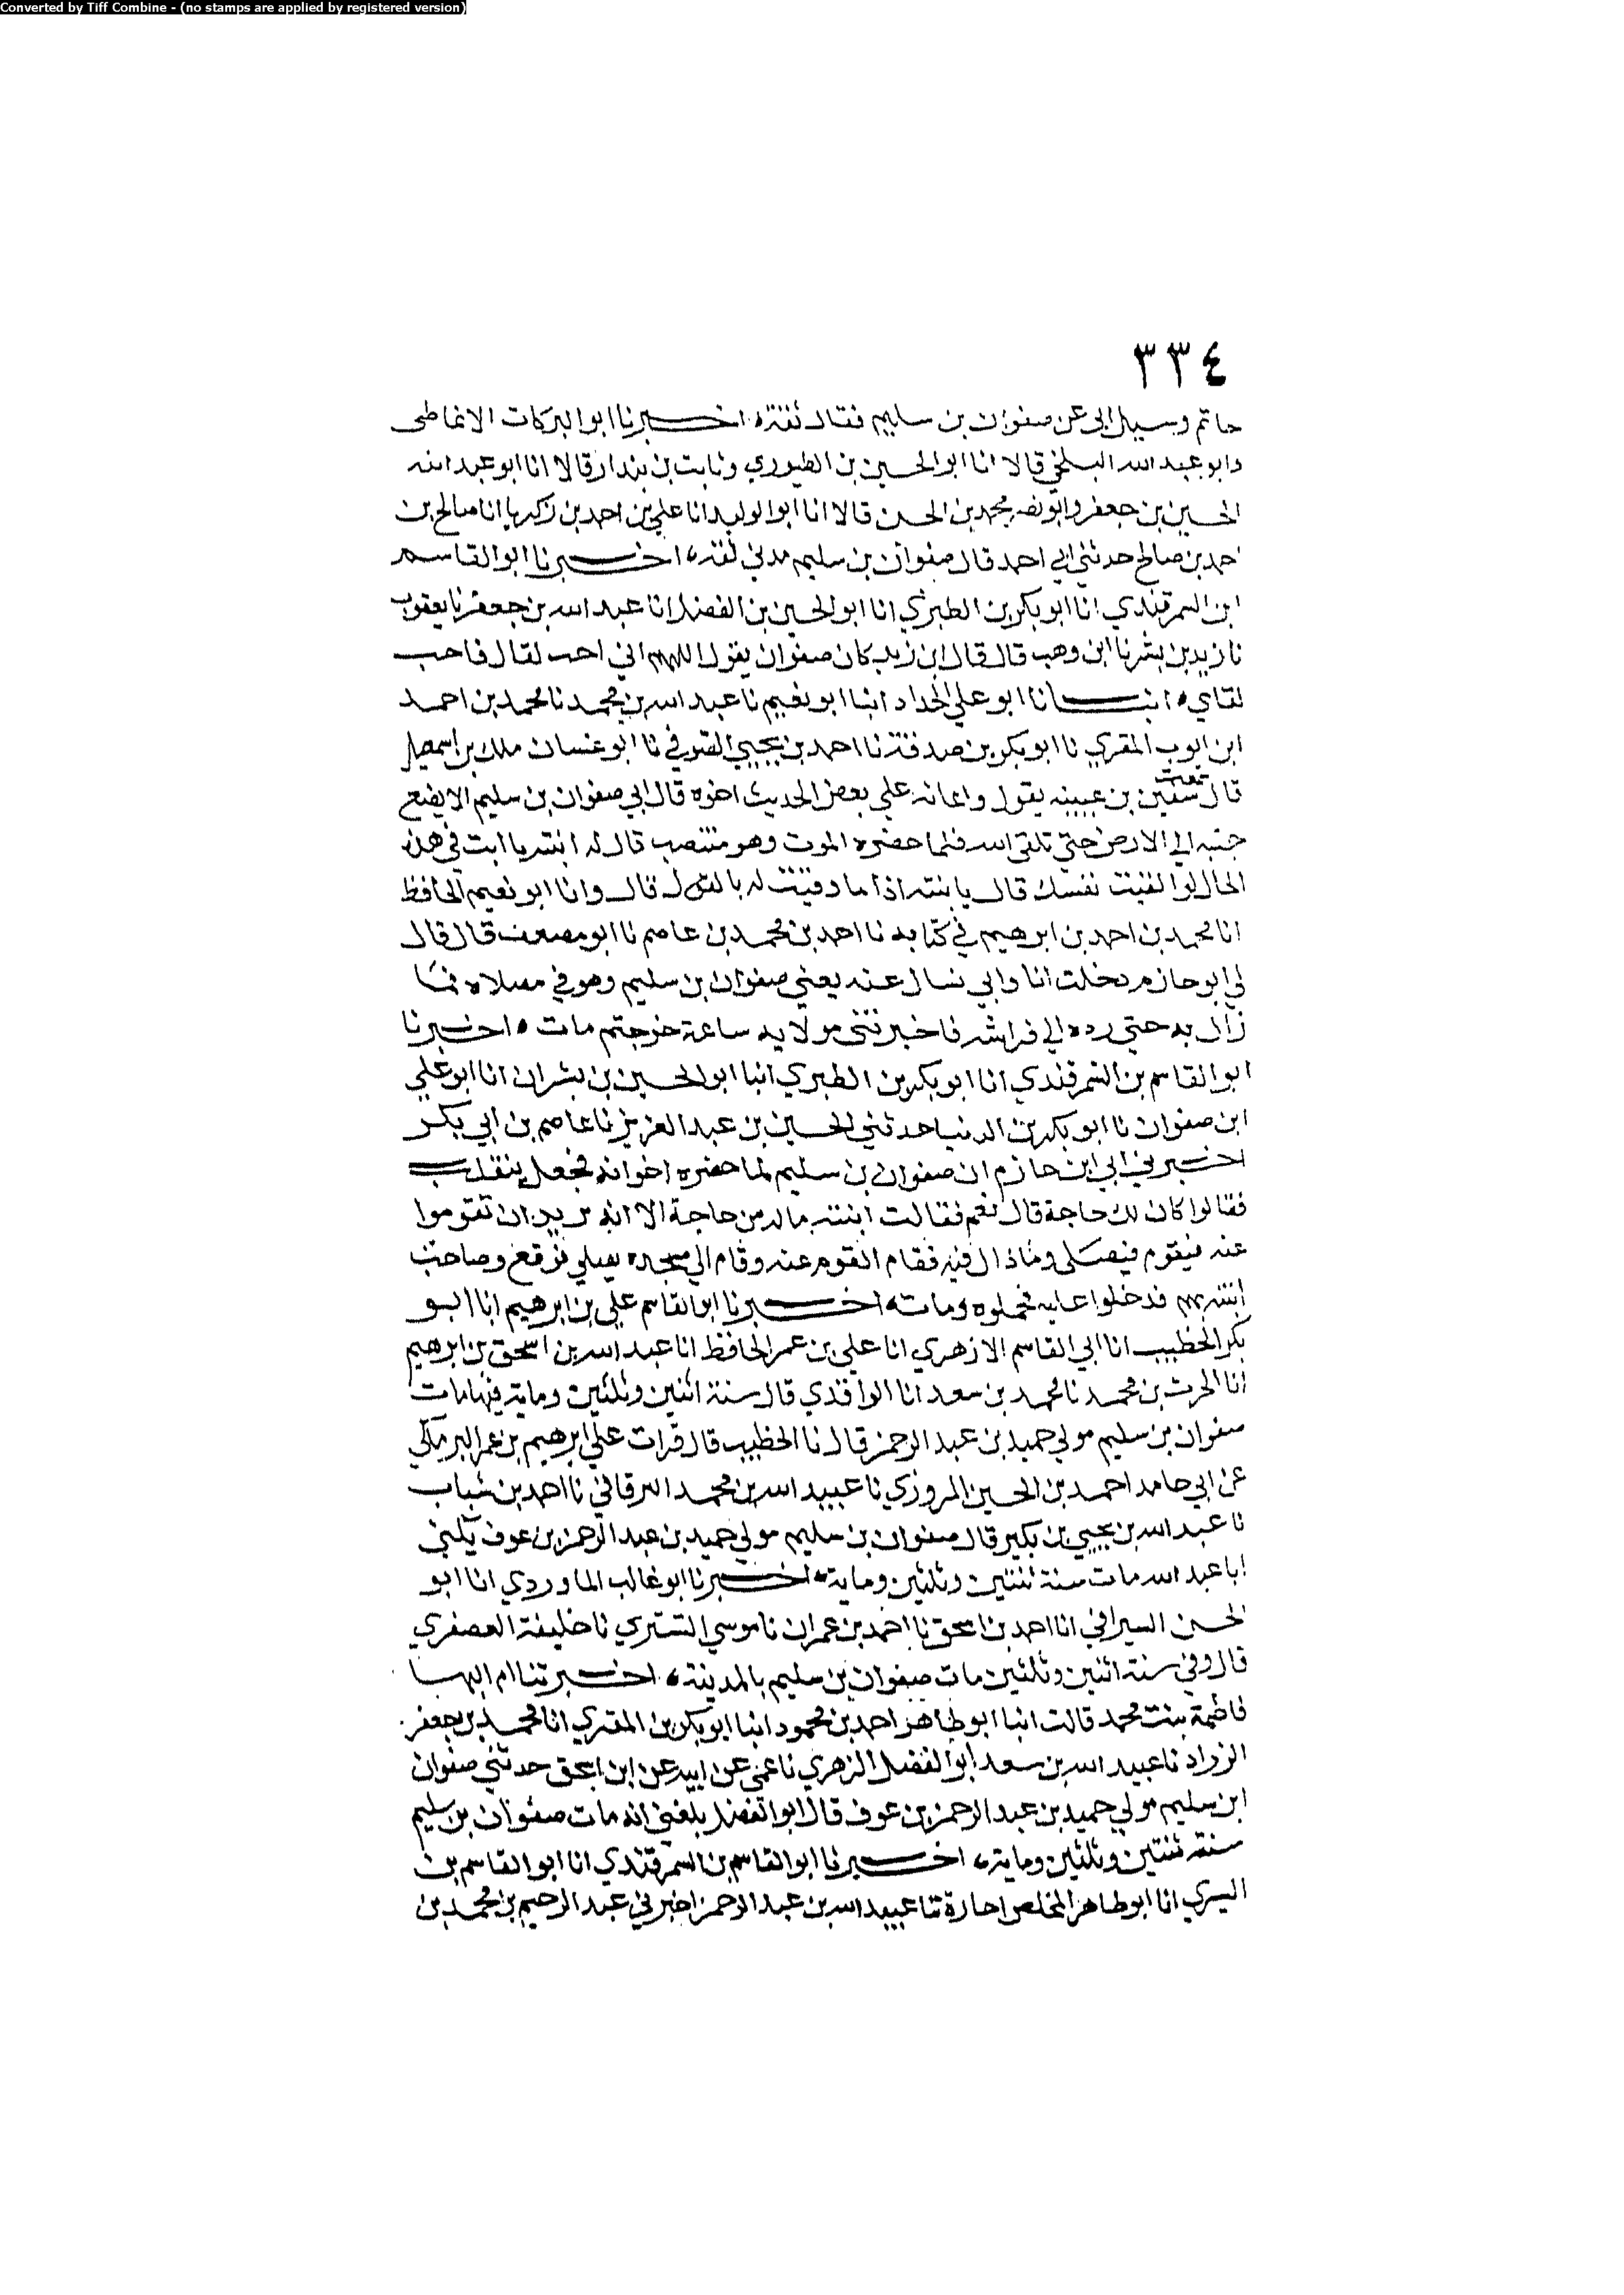 Converted by Tiff Combine - (no stamps are applied by registered version)
٣٣٤
حاتم وسيل ابي عن صفوان بن سليم فقال ثقة، اخبرنا ابو البركات الانماطي
وابو عبد الله البلخي قالا انا ابو الحسين بن الطيوري وثابت بن بندار قالا انا ابو عبد الله
الحسين بن جعفر وابو نصر محمد بن الحسن قالا انا ابو الوليد انا علي بن احمد بن زكريا انا صالح بن
احمد بن صالح حدثني ابي احمد قال صفوان بن سليم مدني ثقة، اخبرنا ابو القاسم
ابن السمرقندي انا ابو بكر بن الطبري انا ابو الحسين بن الفضل انا عبد الله بن جعفر نا يعقوب
نا زيد بن بشر نا ابن وهب قال قال ابن زيد كان صفوان يقول اللهم اني احب لقال فاحب
لقاي، انبانا ابو علي الحداد انبا ابو نعيم نا عبد الله بن محمد نا محمد بن احمد
ابن ايوب المقري نا ابو بكر بن صدقة نا احمد بن يحيي الصوفي نا ابو غسان ملك بن اسمعيل
قال سمعت سفين بن عيينه يقول واعانه علي بعض الحديث اخوه قال ابي صفوان بن سليم الا يضع
جنبه الي الارض حتي تلقي الله فلما حضره الموت وهو منتصب قال له ابنته يا ابت في هذه
الحال لو القيت نفسك قال يا بنته اذا ما وفيت له بالقول قال وانا ابو نعيم الحافظ
انا محمد بن احمد بن ابرهيم في كتابه نا احمد بن محمد بن عاصم نا ابو مصعب قال قال
لي ابو حازم دخلت انا وابي نسال عنه يعني صفوان بن سليم وهو في مصلاه فما
زال به حتي رده الي فراشه فاخبرتني مولايه ساعة خرجتم مات، اخبرنا
ابو القاسم بن السمرقندي انا ابو بكر بن الطبري انبا ابو الحسين بن بشران انا ابو علي
ابن صفوان نا ابو بكر بن الدنيا حدثني الحسين بن عبد العزيز نا عاصم بن ابي بكر
اخبرني ابي ابن حازم ان صفوان بن سليم لما حضره اخوانه فجعل ينقلب
فقالوا كان لك حاجة قال نعم فقالت ابنته ماله من حاجة الا انه يريد ان تقوموا
عنه فيقوم فيصلي وماذا ال فيه فقام القوم عنه وقام الي مسجده يصلي فوقع وصاحت
ابنته بهم فدخلوا عليه فحملوه ومات، اخبرنا ابو القاسم علي بن ابرهيم انا ابو
بكر الخطيب انا ابي القاسم الازهري انا علي بن عمر الحافظ انا عبد الله بن اسحق بن ابرهيم
انا الحرث بن محمد نا محمد بن سعد انا الواقدي قال سنة اثنين وثلثين وماية فيها مات
صفوان بن سليم مولي حميد بن عبد الرحمن قال نا الخطيب قال قرات علي ابرهيم بن عمر البرمكي
عن ابي حامد احمد بن الحسين المروزي نا عبيد الله بن محمد البرقاني نا احمد بن شباب
نا عبد الله بن يحيي بن بكير قال صفوان بن سليم مولي حميد بن عبد الرحمن بن عوف يكني
ابا عبد الله مات سنة اثنتين وثلثين وماية، اخبرنا ابو غالب الماوردي انا ابو
الحسن السيرافي انا احمد بن اسحق نا احمد بن عمران نا موسي التستري نا خليفة العصفري
قال وفي سنة اثنين وثلثين مات صفوان بن سليم بالمدينة، اخبرتنا ام البها
فاطمة بنت محمد قالت انبا ابو طاهر احمد بن محمود انبا ابو بكر بن المقري انا محمد بن جعفر
الزراد نا عبيد الله بن سعد ابو الفضل الزهري نا عمي عن ابيه عن ابن اسحق حدثني صفوان
ابن سليم مولي حميد بن عبد الرحمن بن عوف قال ابو الفضل بلغني انه مات صفوان بن سليم
سنة ثنتين وثلثين وماية، اخبرنا ابو القاسم بن السمرقندي انا ابو القاسم بن
اليسري انا ابو طاهر المخلص اجازة ثنا عبيد الله بن عبد الرحمن اخبرني عبد الرحيم بن محمد بن